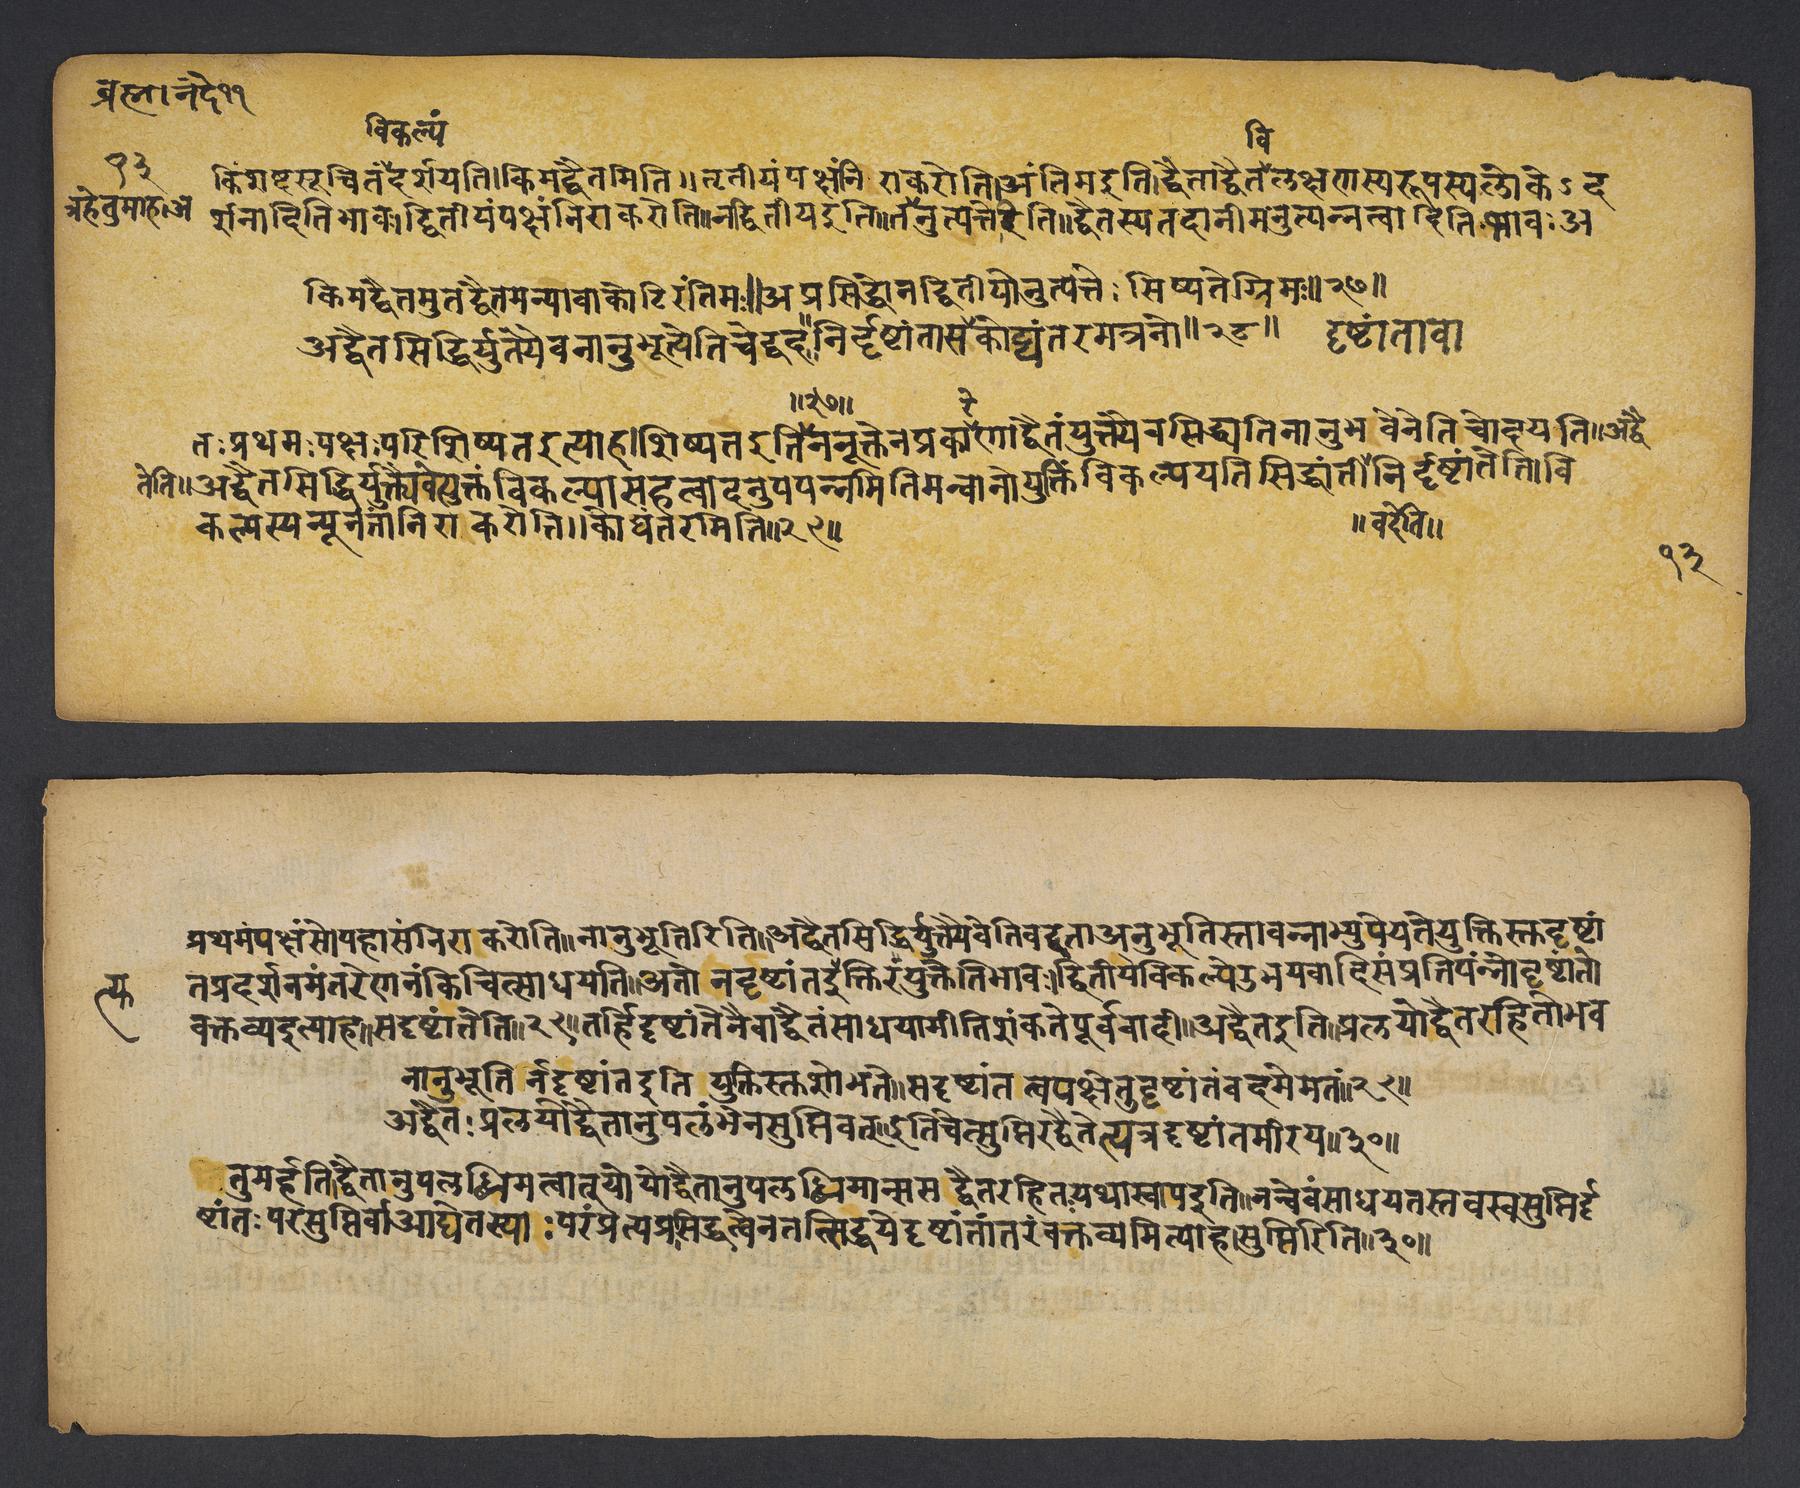 ब्रह्मानंदे ११
विकल्पं
वि
१३
किंशब्दसूचितं दर्शयति। किमद्वैतमिति॥ तृतीयं पक्षं निराकरोति। अंतिम इति। द्वैताद्वैतलक्षणस्य रूपस्य लोके ऽद
त्रहेतुमाह। अ
र्शनादिति भावः। द्वितीयं पक्षं निराकरोति॥ न द्वितीय इति॥ तनुत्पत्तेरिति॥ द्वैतस्य तदानीमनुत्पन्नत्वादिति भावः अ
किमद्वैतमुत द्वैतमन्या वा कोटिरंतिमः॥ अप्रसिद्धो न द्वितीयोनुत्पत्तेः सिष्यतेग्रिमः॥ २७॥
अद्वैतसिद्धिर्युक्त्यैव नानुभूत्येति चेद्वद॥ निर्दृष्टांता स कोट्यंतरमत्र नो॥ २८॥ दृष्टांता वा
॥२७॥
तः प्रथमः पक्षः परिशिष्यत इत्याह। शिष्यत इति ननूक्तेन प्रकारेणाद्वैतं युक्त्यैव सिद्ध्यति नानुभवेनेति चोदयति॥ अद्वै
तेति॥ अद्वैतसिद्धिर्युक्त्यैवेत्युक्तं विकल्पासहत्वादनुपपन्नमिति मन्वानो युक्तिं विकल्पयति सिद्धांती निर्दृष्टांतेति। वि
कल्पस्य न्यूनतां निराकरोति॥ कोट्यंतरमिति॥ २८॥
॥ वदेति॥
१३
प्रथमं पक्षं सोपहासं निराकरोति॥ नानुभूतिरिति॥ अद्वैतसिद्धिर्युक्त्यैवेति वदता अनुभूतिस्तावन्नाभ्युपेयते युक्तिस्तु दृष्टां
तप्रदर्शनमंतरेण न किंचित्साधयति॥ अतो न दृष्टांत इत्युक्तिरयुक्तेति भावः। द्वितीये विकल्पे उभयवादिसंप्रतिपन्नो दृष्टांतो
त्यु
वक्तव्य इत्याह॥ सदृष्टांतेति॥ २९॥ तर्हि दृष्टांतेनैवाद्वैतं साधयामीति शंकते पूर्ववादी॥ अद्वैत इति॥ प्रलयो द्वैतरहितो भव
नानुभूतिर्न दृष्टांत इति युक्तिस्तु शोभते॥ सदृष्टांतत्वपक्षे तु दृष्टांतं वद मे मतं॥ २९॥
अद्वैतः प्रलयो द्वैतानुपलंभेन सुप्तिवत्॥ इति चेत्सुप्तिरद्वैतेत्यत्र दृष्टांतमीरय॥ ३०॥
तुमर्हति द्वैतानुपलब्धिमत्वात् यो यो द्वैतानुपलब्धिमान्स स द्वैतरहितः यथा स्वाप इति॥ नन्वेवं साधयतस्तव स्वसुप्तिर्दृ
ष्टांतः परसुप्तिर्वा आद्येतस्याः परं प्रत्यप्रसिद्धत्वेन तत्सिद्धये दृष्टांतांतरं वक्तव्यमित्याह। सुप्तिरिति॥ ३०॥